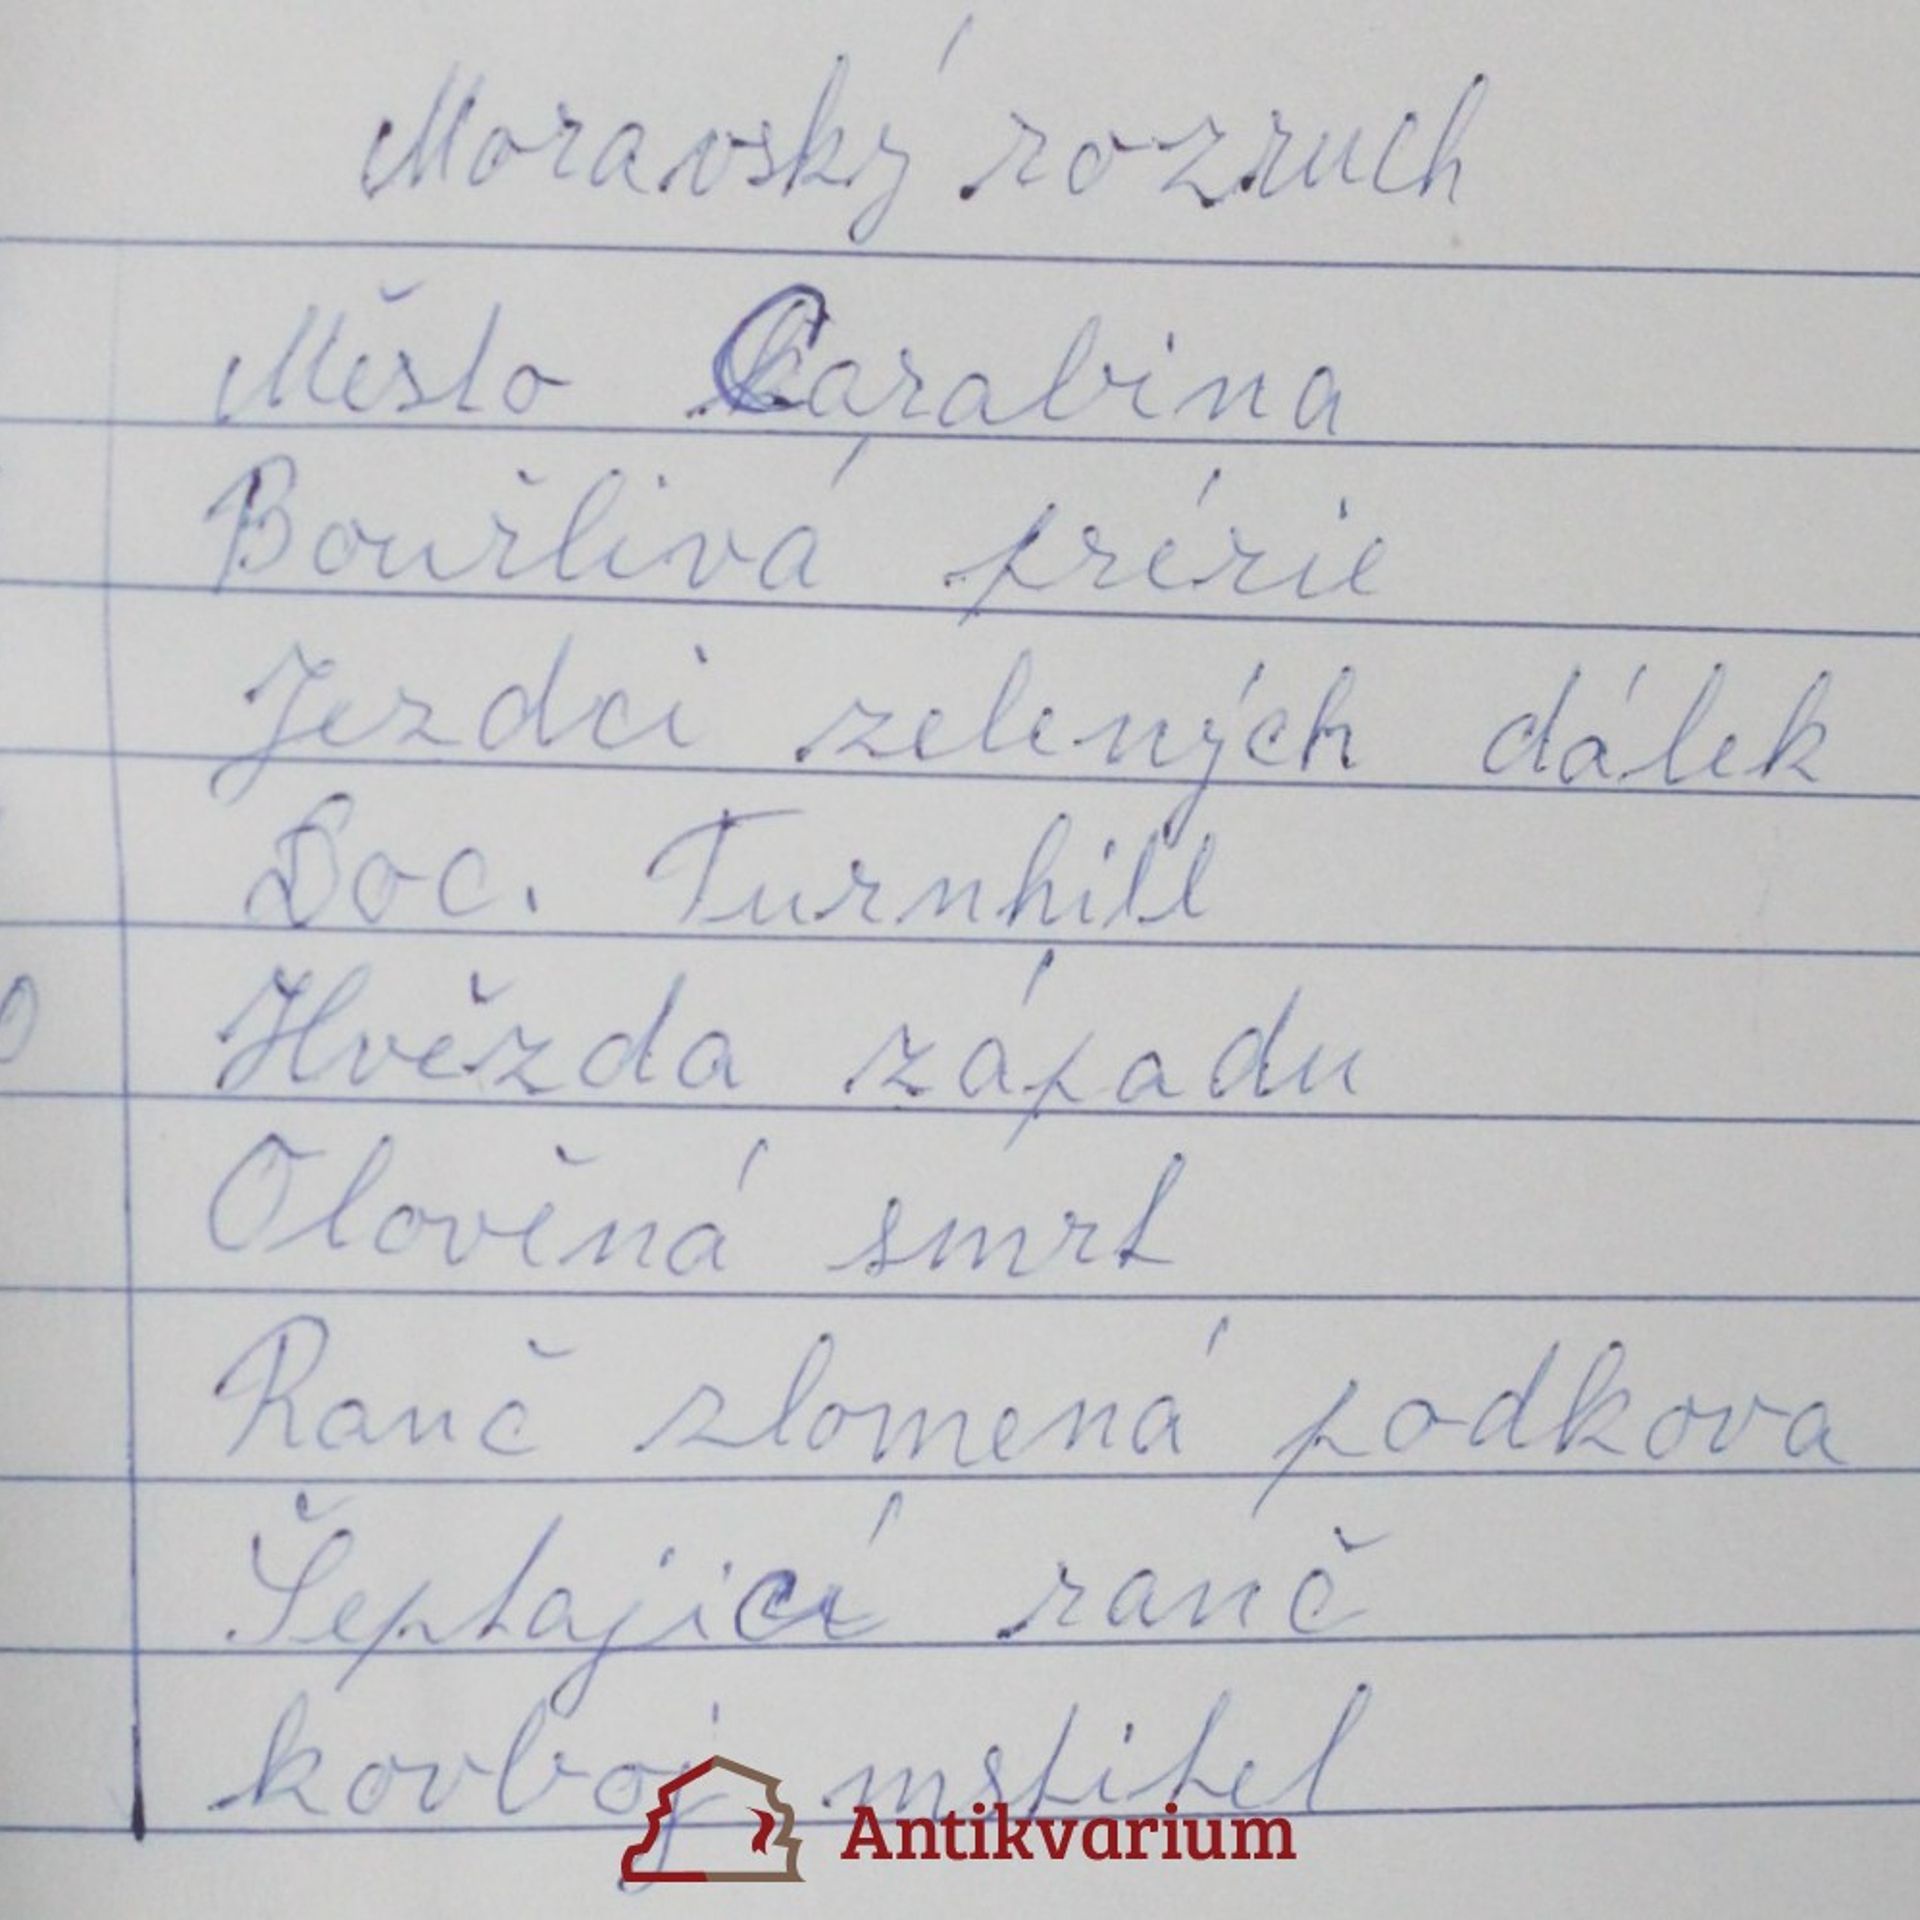 Moravský rozruch
Město Carabina
Bouřlivá prérie
Jezdci zelených dálek
Doc. Turnhill
0
Hvězda západu
Olověná smrt
Ranč zlomená podkova
Šeptající ranč
kovboj mstitel
Antikvarium